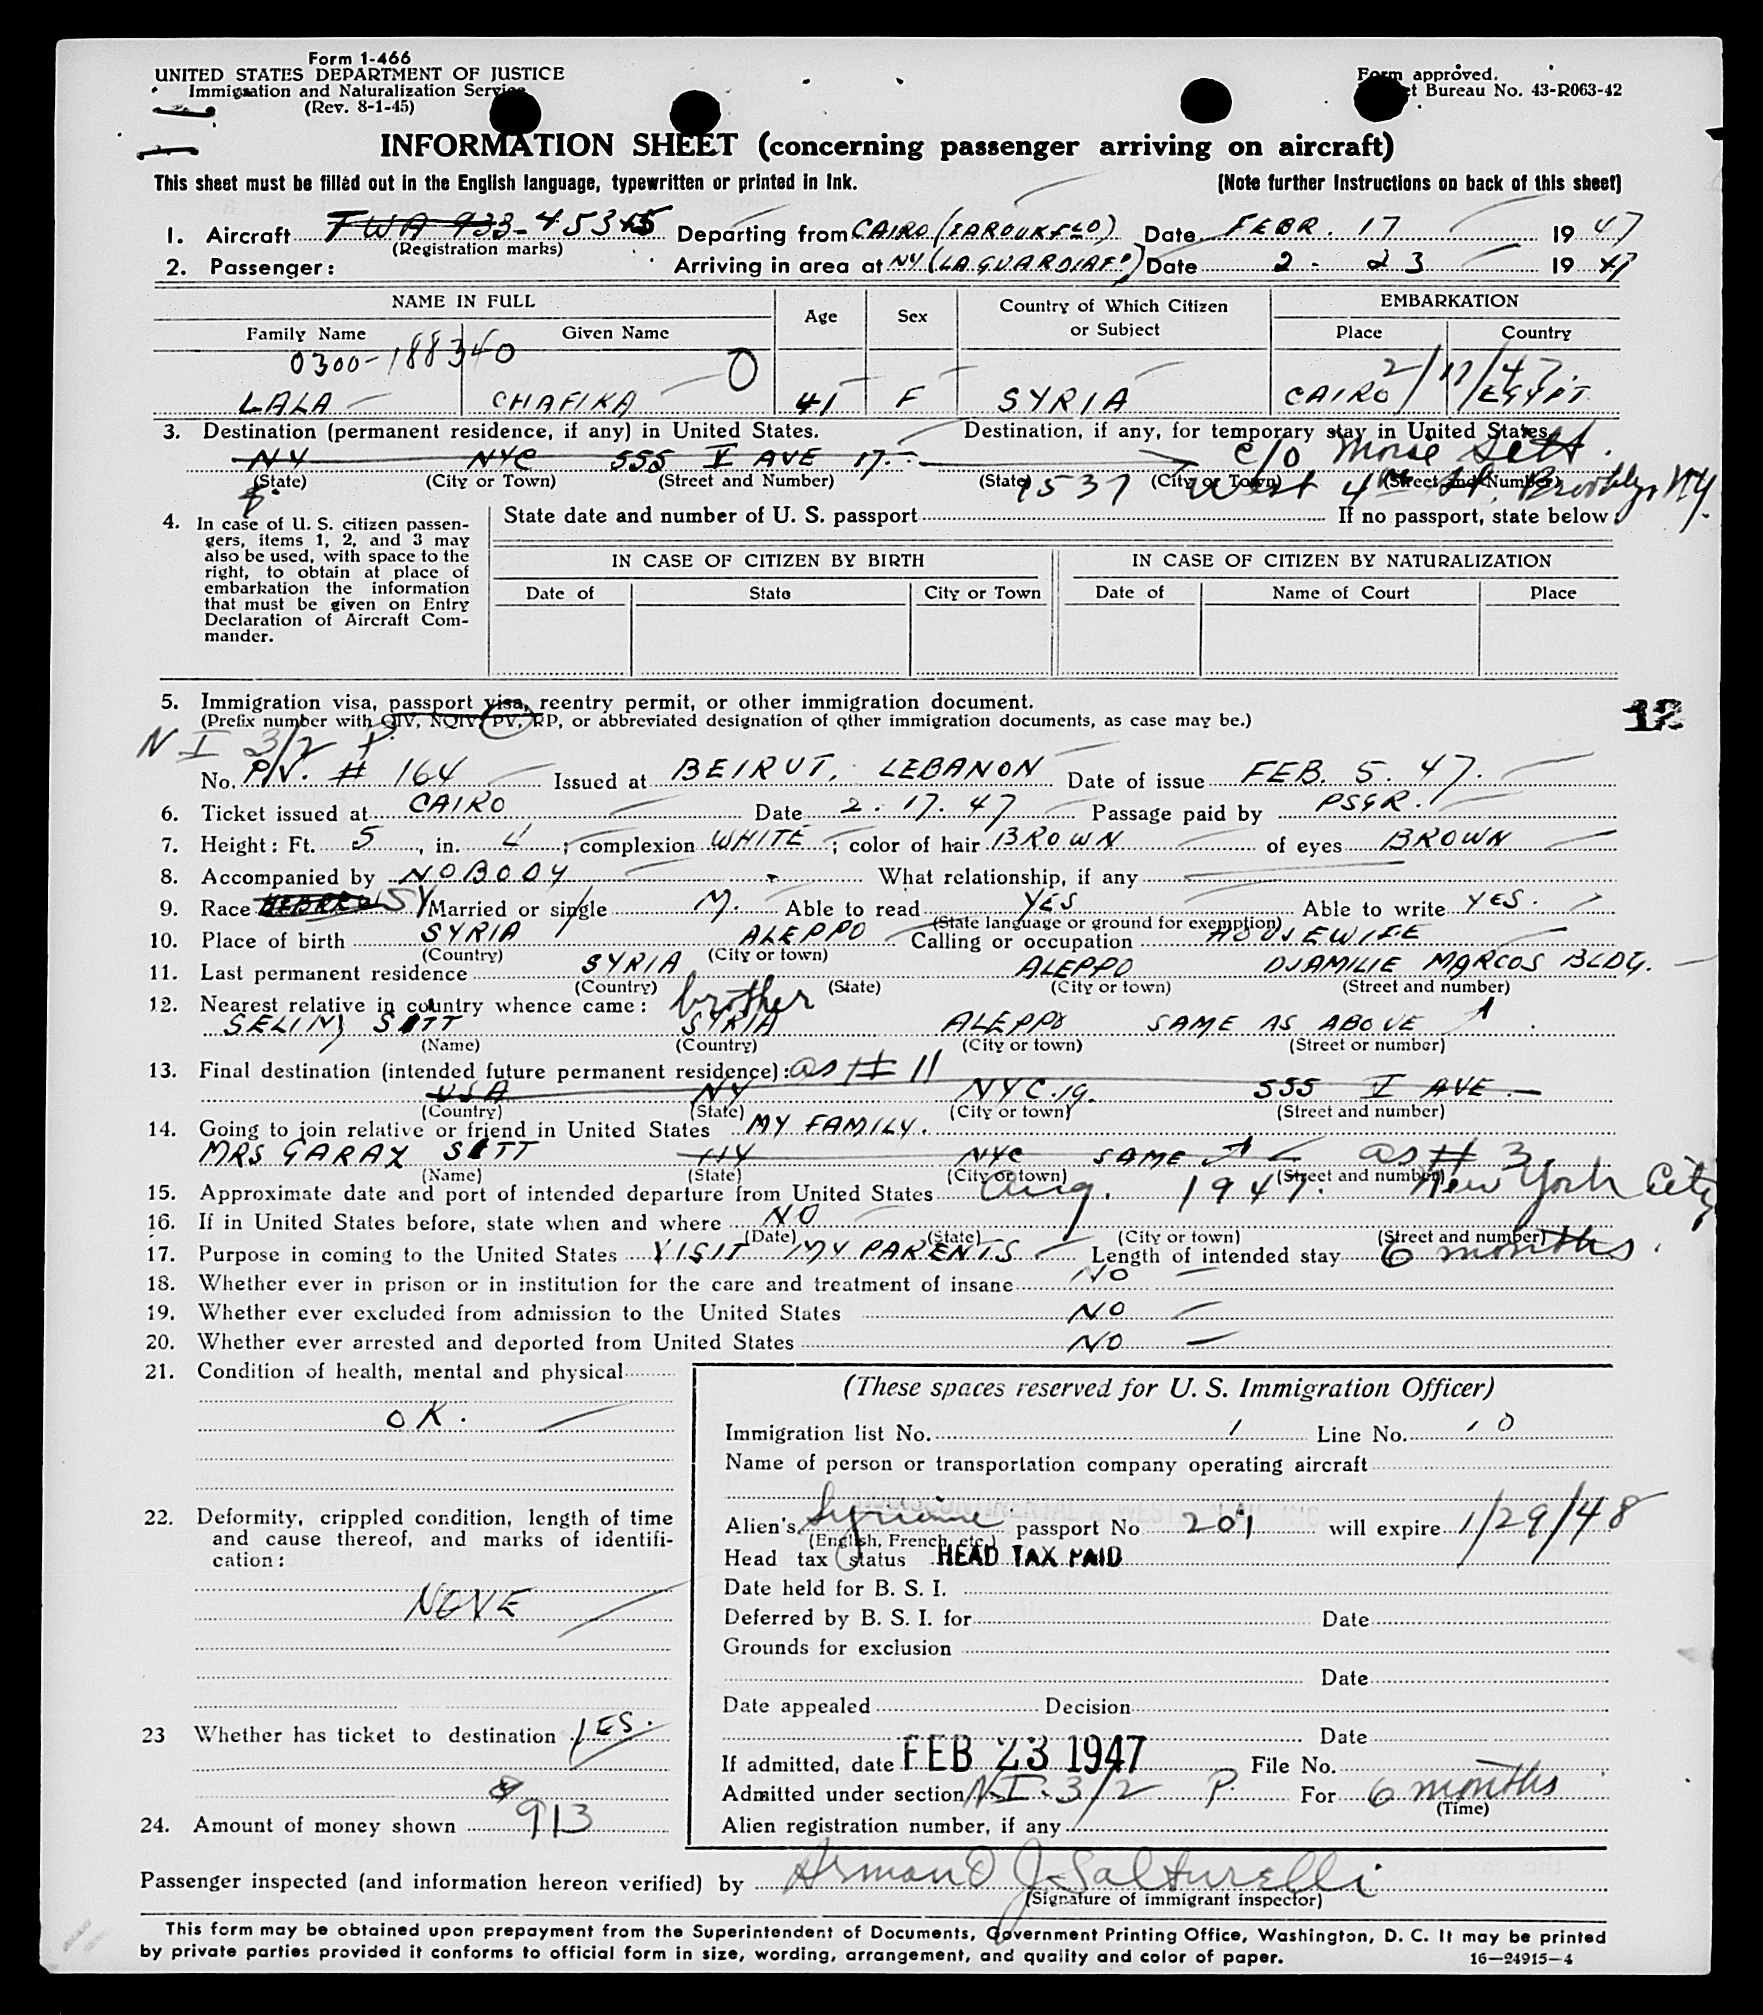 Form 1-466
UNITED STATES DEPARTMENT OF JUSTICE
Immigration and Naturalization Service
(Rev. 8-1-45)
Form approved.
Bureau No. 43-R063-42
INFORMATION SHEET (concerning passenger arriving on aircraft)
This sheet must be filled out in the English language, typewritten or printed in ink.
(Note further instructions on back of this sheet)
1. Aircraft TWA 933- Departing from CAIRO (FAROUK FLD) Date FEBR. 17 1947
(Registration marks)
2. Passenger: Arriving in area at NY (LA GUARDIA F.) Date 2 - 23 1947
NAME IN FULL Age Sex Country of Which Citizen or Subject EMBARKATION
Family Name Given Name Place Country
0300-188340 0 2/17/47.
LALA CHAFIKA 41 F SYRIA CAIRO EGYPT
3. Destination (permanent residence, if any) in United States. Destination, if any, for temporary stay in United States.
NY NYC 555 V AVE 17. c/o Morse Sett.
(State) (City or Town) (Street and Number) (State) (City or Town) (Street and Number)
1537 West 4th St. Brooklyn NY.
4. In case of U. S. citizen passengers, items 1, 2, and 3 may also be used, with space to the right, to obtain at place of embarkation the information that must be given on Entry Declaration of Aircraft Commander.
State date and number of U. S. passport If no passport, state below
IN CASE OF CITIZEN BY BIRTH IN CASE OF CITIZEN BY NATURALIZATION
Date of State City or Town Date of Name of Court Place
5. Immigration visa, passport visa, reentry permit, or other immigration document.
(Prefix number with QIV, NQIV, PV, RP, or abbreviated designation of other immigration documents, as case may be.)
12
N I 3/2 P.
No. P.V. # 164 Issued at BEIRUT, LEBANON Date of issue FEB. 5. 47.
6. Ticket issued at CAIRO Date 2. 17. 47 Passage paid by PSGR.
7. Height: Ft. 5, in. 4; complexion WHITE; color of hair BROWN of eyes BROWN
8. Accompanied by NOBODY What relationship, if any
9. Race HEBREW SY Married or single M. Able to read YES Able to write YES.
(State language or ground for exemption)
10. Place of birth SYRIA ALEPPO Calling or occupation HOUSEWIFE
(Country) (City or town)
11. Last permanent residence SYRIA ALEPPO DJAMILIE MARCOS BLDG.
(Country) (State) (City or town) (Street and number)
12. Nearest relative in country whence came: brother
SELIM SETT SYRIA ALEPPO SAME AS ABOVE
(Name) (Country) (City or town) (Street or number)
13. Final destination (intended future permanent residence): as # 11
USA NY NYC.19. 555 V AVE
(Country) (State) (City or town) (Street and number)
14. Going to join relative or friend in United States MY FAMILY.
MRS GARAZ SETT NY NYC SAME as # 3
(Name) (State) (City or town) (Street and number)
15. Approximate date and port of intended departure from United States Aug. 1947. New York City
16. If in United States before, state when and where NO
(Date) (State) (City or town) (Street and number)
17. Purpose in coming to the United States VISIT MY PARENTS Length of intended stay 6 months.
18. Whether ever in prison or in institution for the care and treatment of insane NO
19. Whether ever excluded from admission to the United States NO
20. Whether ever arrested and deported from United States NO
21. Condition of health, mental and physical
OK.
22. Deformity, crippled condition, length of time and cause thereof, and marks of identification:
NONE
23 Whether has ticket to destination YES.
24. Amount of money shown $913
(These spaces reserved for U. S. Immigration Officer)
Immigration list No. 1 Line No. 10
Name of person or transportation company operating aircraft
Alien's Syrian passport No. 201 will expire 1/29/48
(English, French, etc.)
Head tax status HEAD TAX PAID
Date held for B. S. I.
Deferred by B. S. I. for Date
Grounds for exclusion
Date
Date appealed Decision
Date
If admitted, date FEB 23 1947 File No.
Admitted under section NI. 3/2 P. For 6 months
(Time)
Alien registration number, if any
Passenger inspected (and information hereon verified) by Armand J. Salturelli
(Signature of immigrant inspector)
This form may be obtained upon prepayment from the Superintendent of Documents, Government Printing Office, Washington, D. C. It may be printed
by private parties provided it conforms to official form in size, wording, arrangement, and quality and color of paper. 16—24915-4